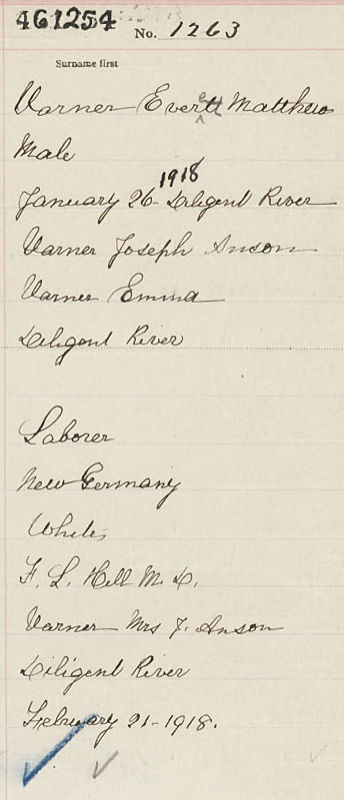 461254
No. 1263
Surname first
Varner Everett Matthew
Male
1918
January 26 - Diligent River
Varner Joseph Anson
Varner Emma
Diligent River
Laborer
New Germany
White
F. L. Hill M. D.
Varner Mrs J. Anson
Diligent River
February 21 - 1918.